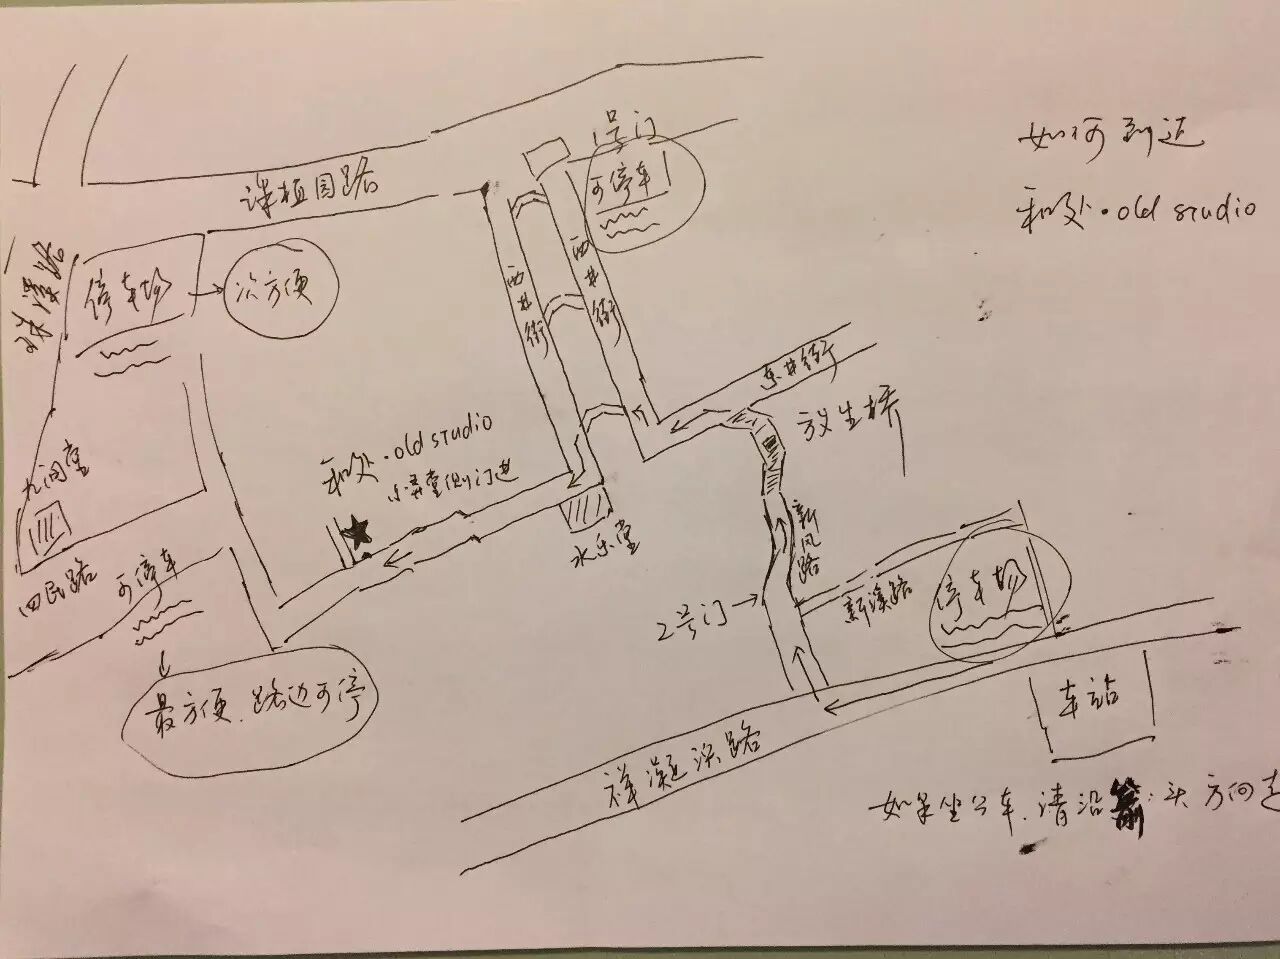 如何到达
和处·old studio
1号门
可停车
课植园路
停车场
次方便
西井街
西井街
东井街
放生桥
和处·old studio
九间堂
四民路
可停车
最方便.路边可停
永乐堂
新风路
2号门
新溪路
停车场
车站
祥凝浜路
如果坐公车,请沿箭头方向走